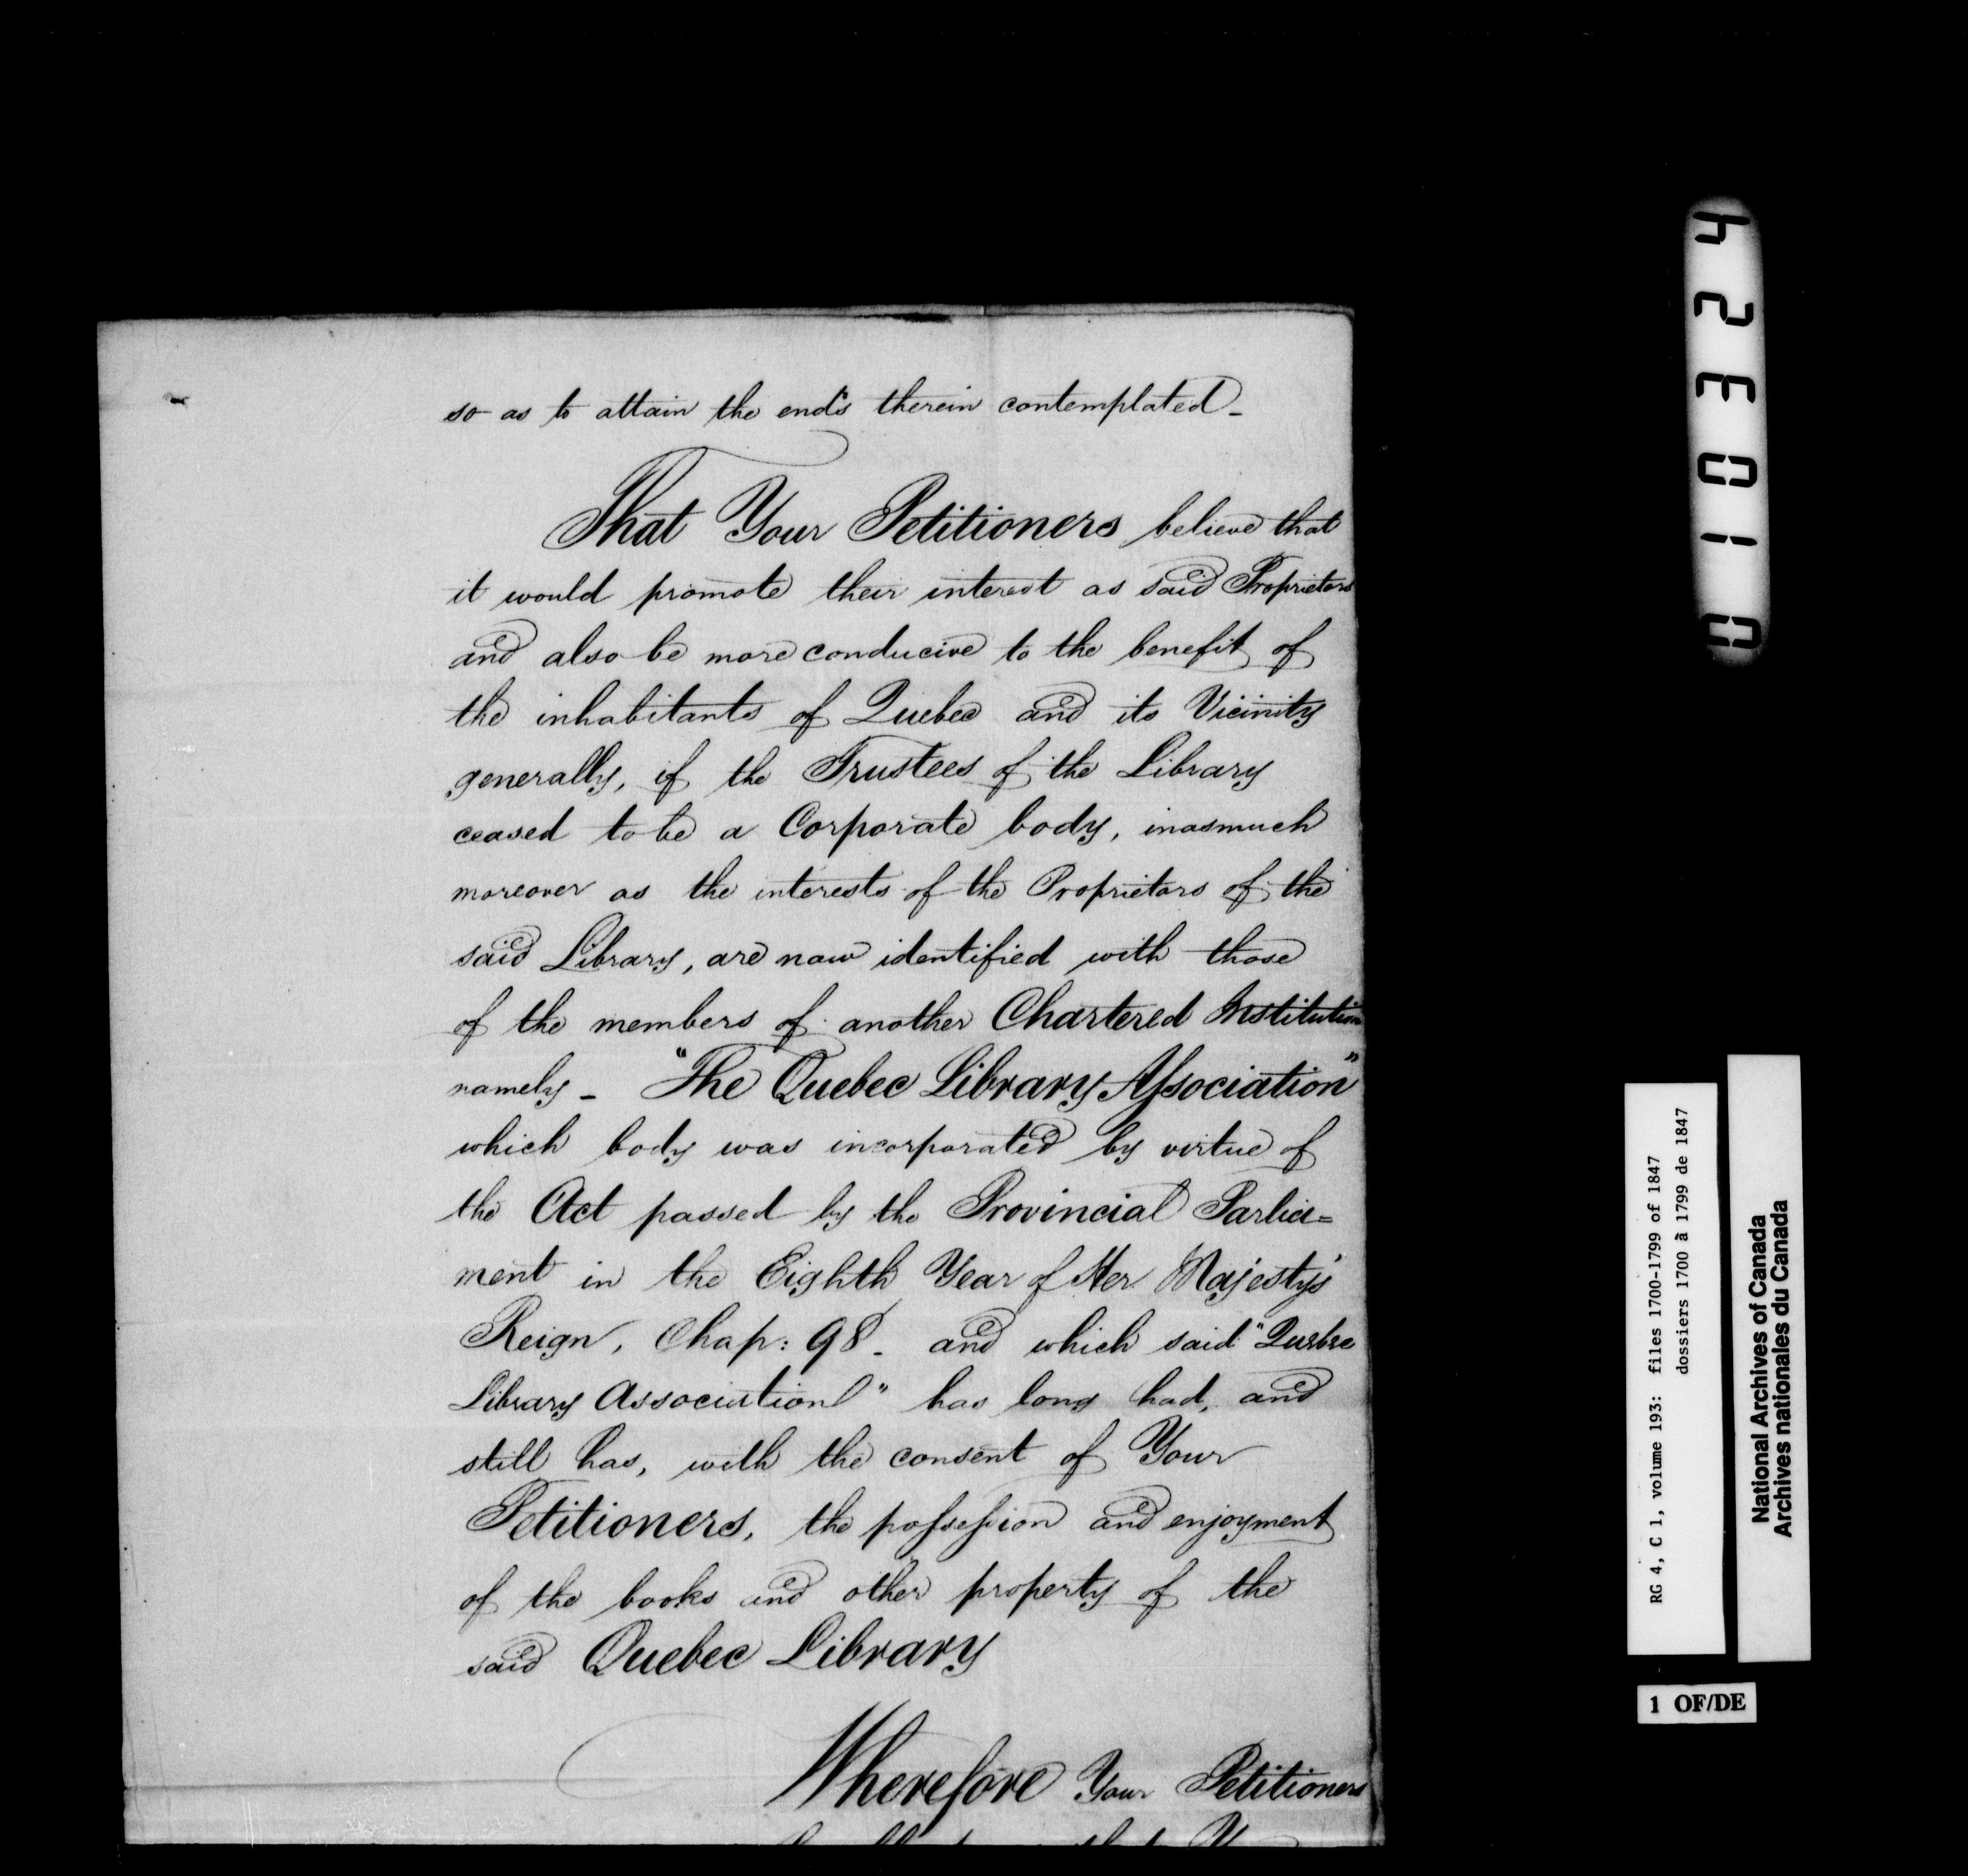 so as to attain the ends therein contemplated_
That Your Petitioners believe that
it would promote their interest as said Proprietors
and also be more conducive to the benefit of
the inhabitants of Quebec and its Vicinity
generally, if the Trustees of the Library
ceased to be a Corporate body, inasmuch
moreover as the interests of the Proprietors of the
said Library, are now identified with those
of the members of another Chartered Institution
namely _ "The Quebec Library Association"
which body was incorporated by virtue of
the Act passed by the Provincial Parlia=
ment in the Eighth Year of Her Majesty's
Reign, Chap: 98_ and which said "Quebec
Library Association" has long had, and
still has, with the consent of Your
Petitioners, the possession and enjoyment
of the books and other property of the
said Quebec Library
Wherefore Your Petitioners
010324
RG 4, C 1, volume 193: files 1700-1799 of 1847
dossiers 1700 à 1799 de 1847
National Archives of Canada
Archives nationales du Canada
1 OF/DE